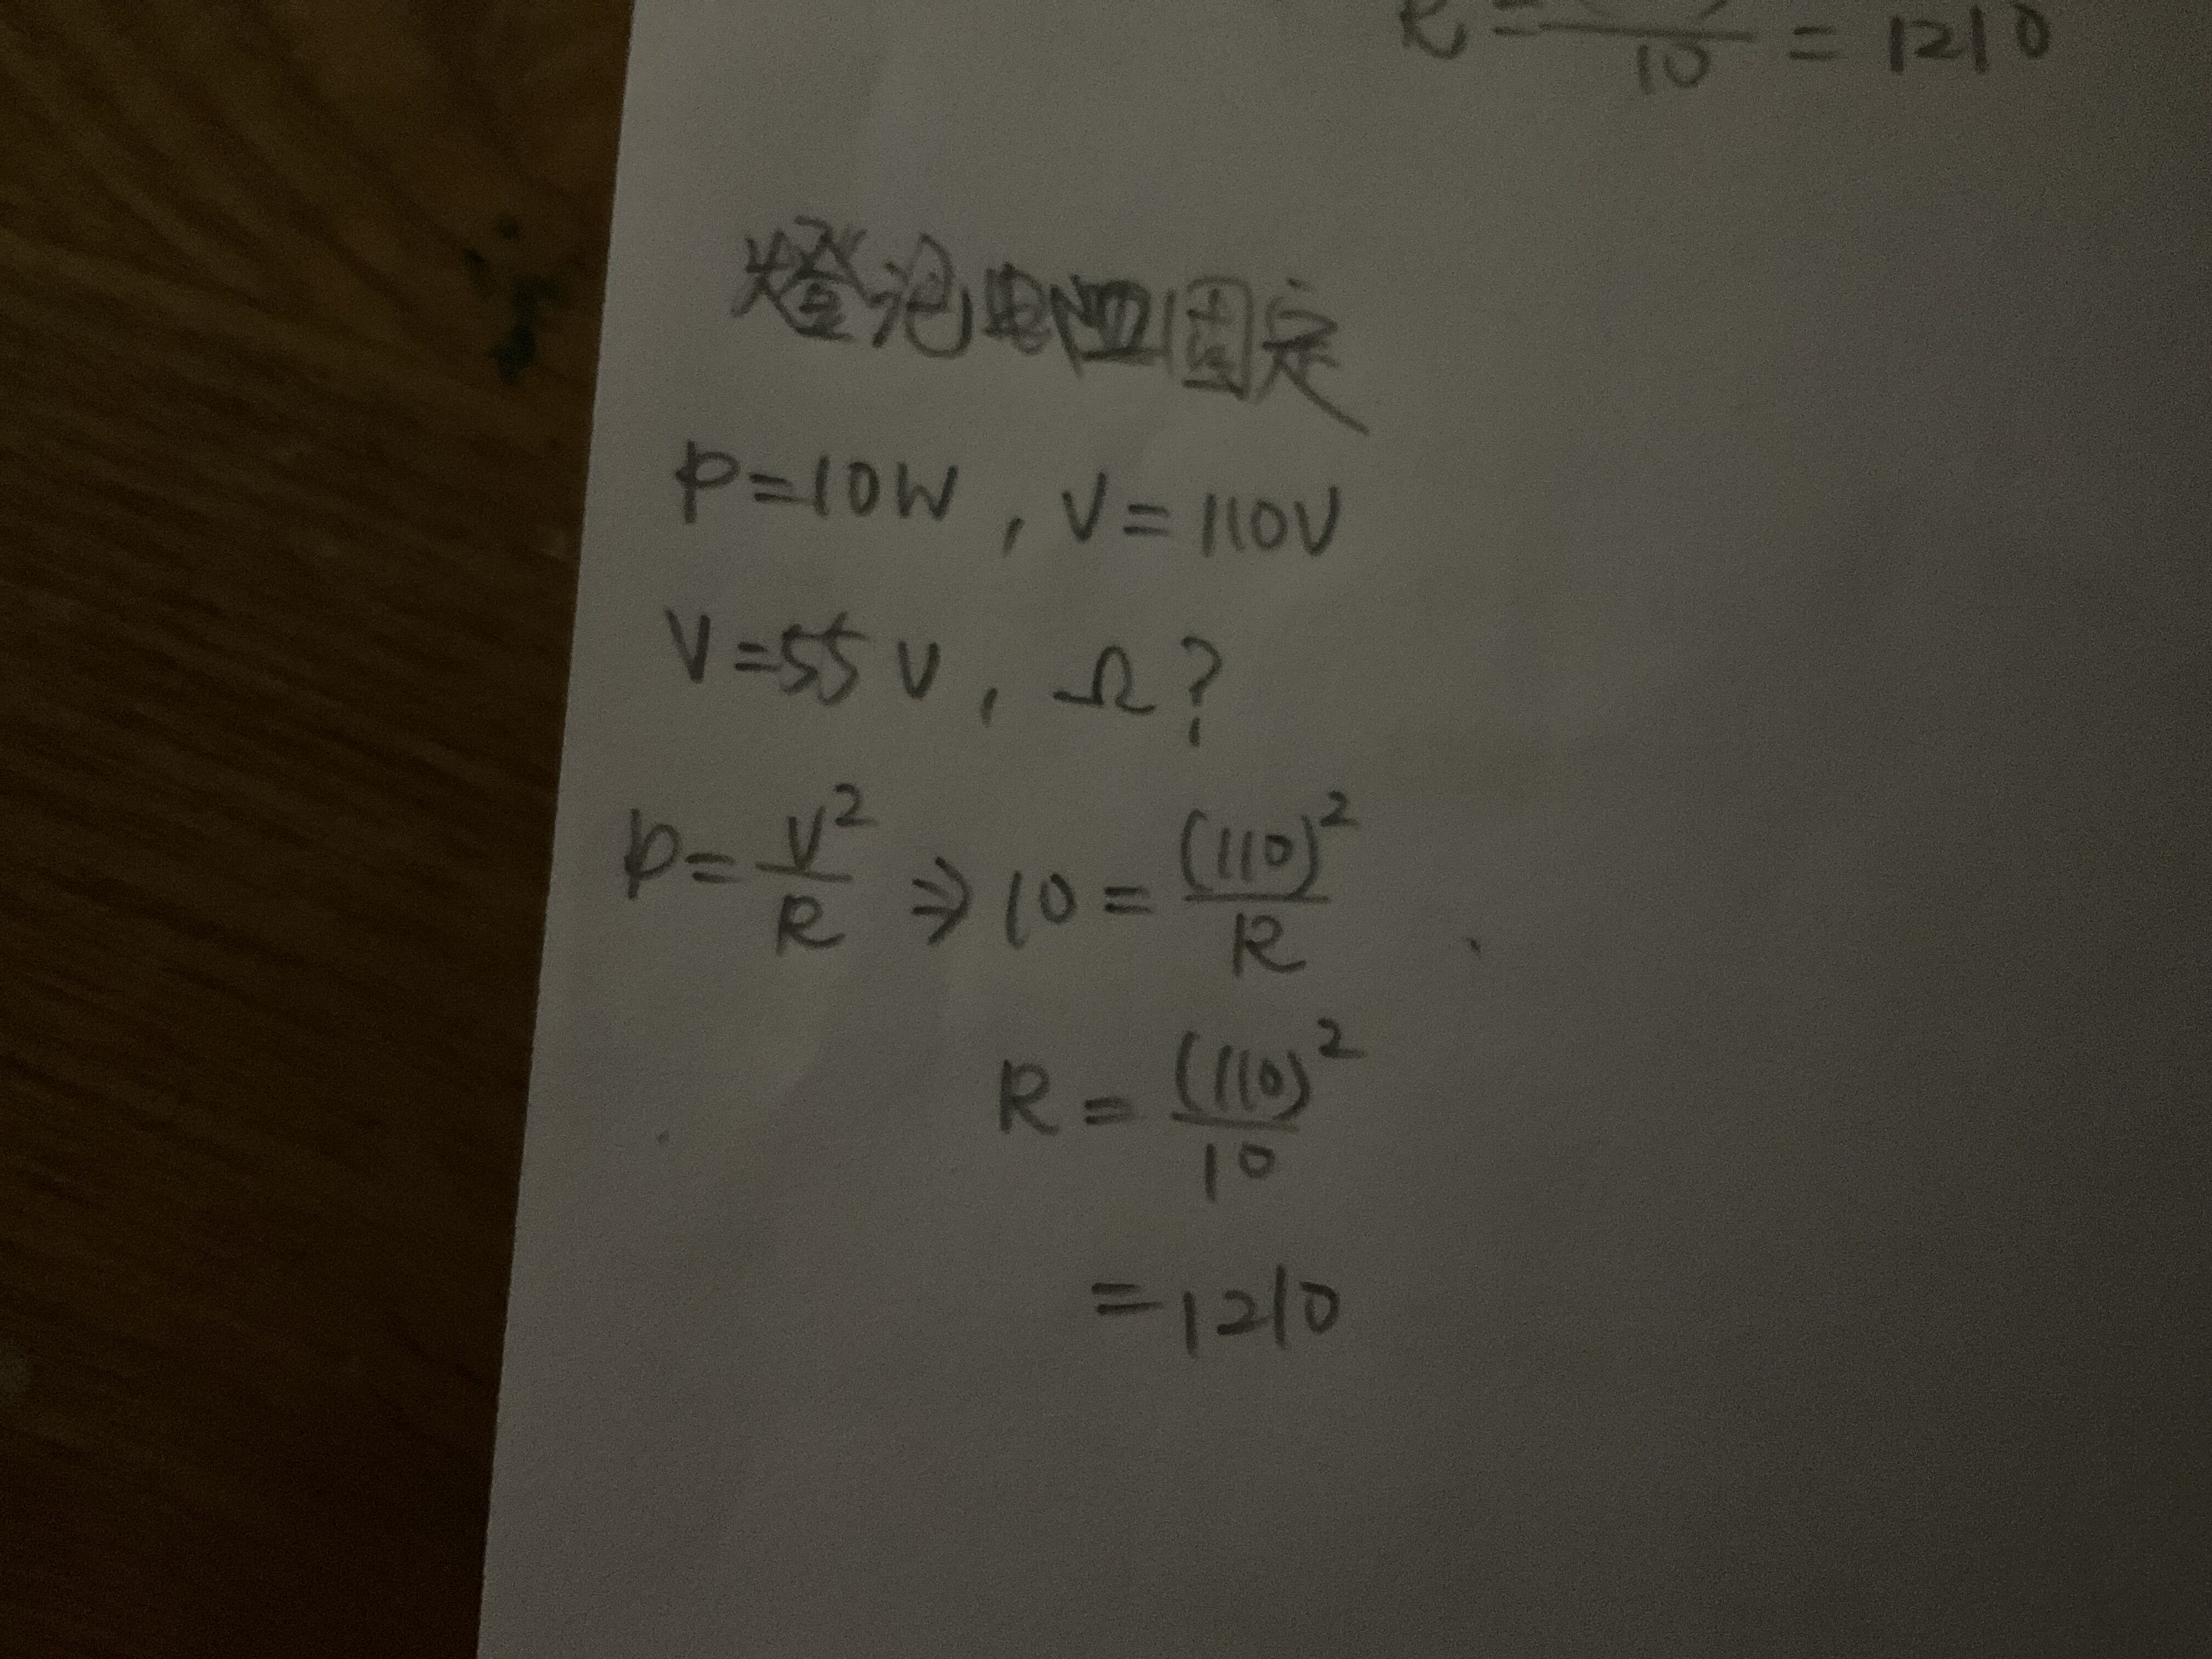 R = ― / 10 = 1210
燈泡電阻固定
P=10W , V=110V
V=55V , Ω?
P=V²/R ⇒ 10=(110)²/R
R=(110)²/10
=1210